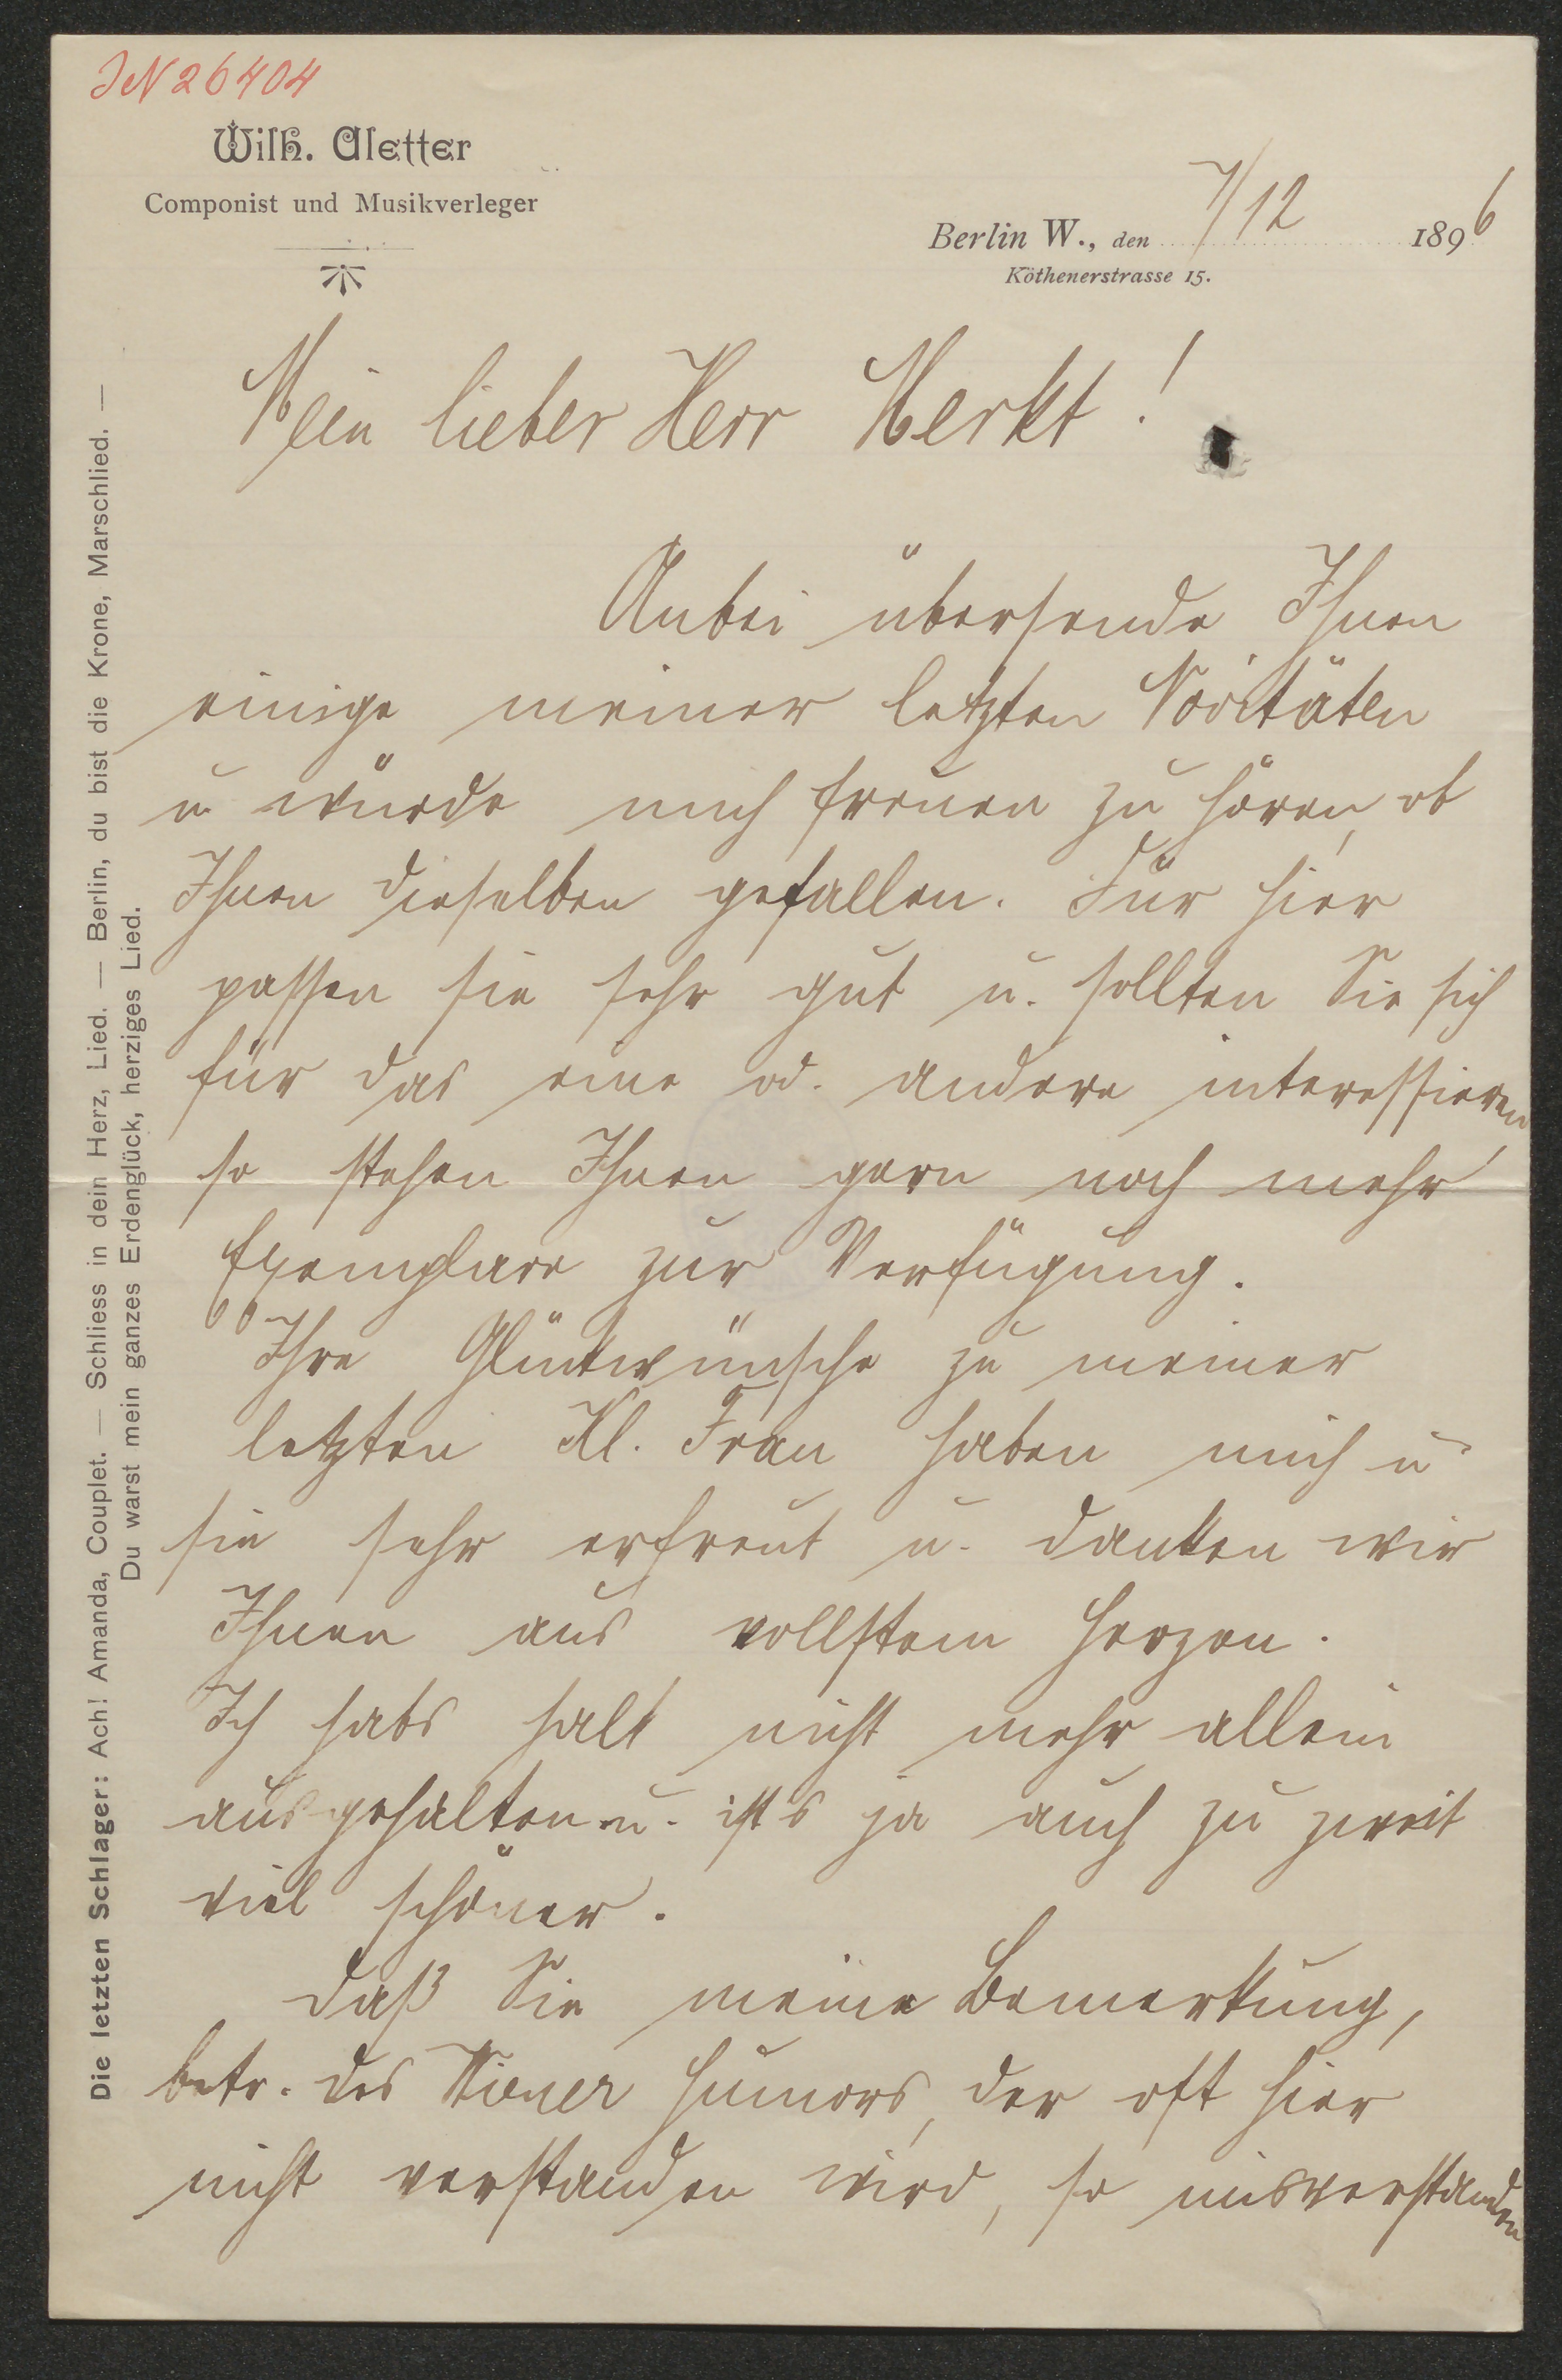 JN 26404
Wilh. Aletter
Componist und Musikverleger
Berlin W., den 7/12 1896
Köthenerstrasse 15.
Mein lieber Herr Merkt!
Anbei übersende Ihnen
einige meiner letzten Novitäten
u. würde mich freuen zu hören, ob
Ihnen dieselben gefallen. Für hier
passen sie sehr gut u. sollten Sie sich
für das eine od. andere interessieren,
so stehen Ihnen gern noch mehr
Exemplare zur Verfügung.
Ihre Glückwünsche zu meiner
letzten Kl. Frau haben mich u.
sie sehr erfreut u. danken wir
Ihnen aus vollstem Herzen.
Ich habs halt nicht mehr allein
ausgehalten u. ists ja auch zu zweit
viel schöner.
Daß Sie meine Bemerkung,
betr. des Wiener Humors, der oft hier
nicht verstanden wird, so misverstanden
Die letzten Schlager: Ach! Amanda, Couplet. — Schliess in dein Herz, Lied. — Berlin, du bist die Krone, Marschlied. —
Du warst mein ganzes Erdenglück, herziges Lied.